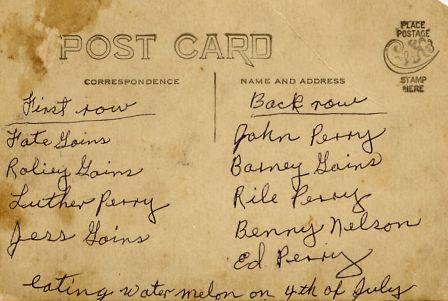 POST CARD
PLACE
POSTAGE
STAMP
HERE
CORRESPONDENCE
NAME AND ADDRESS
First row
Fate Goins
Roliey Goins
Luther Perry
Jess Goins
Back row
John Perry
Barney Goins
Rile Perry
Benny Nelson
Ed. Perry
eating water melon on 4th of July